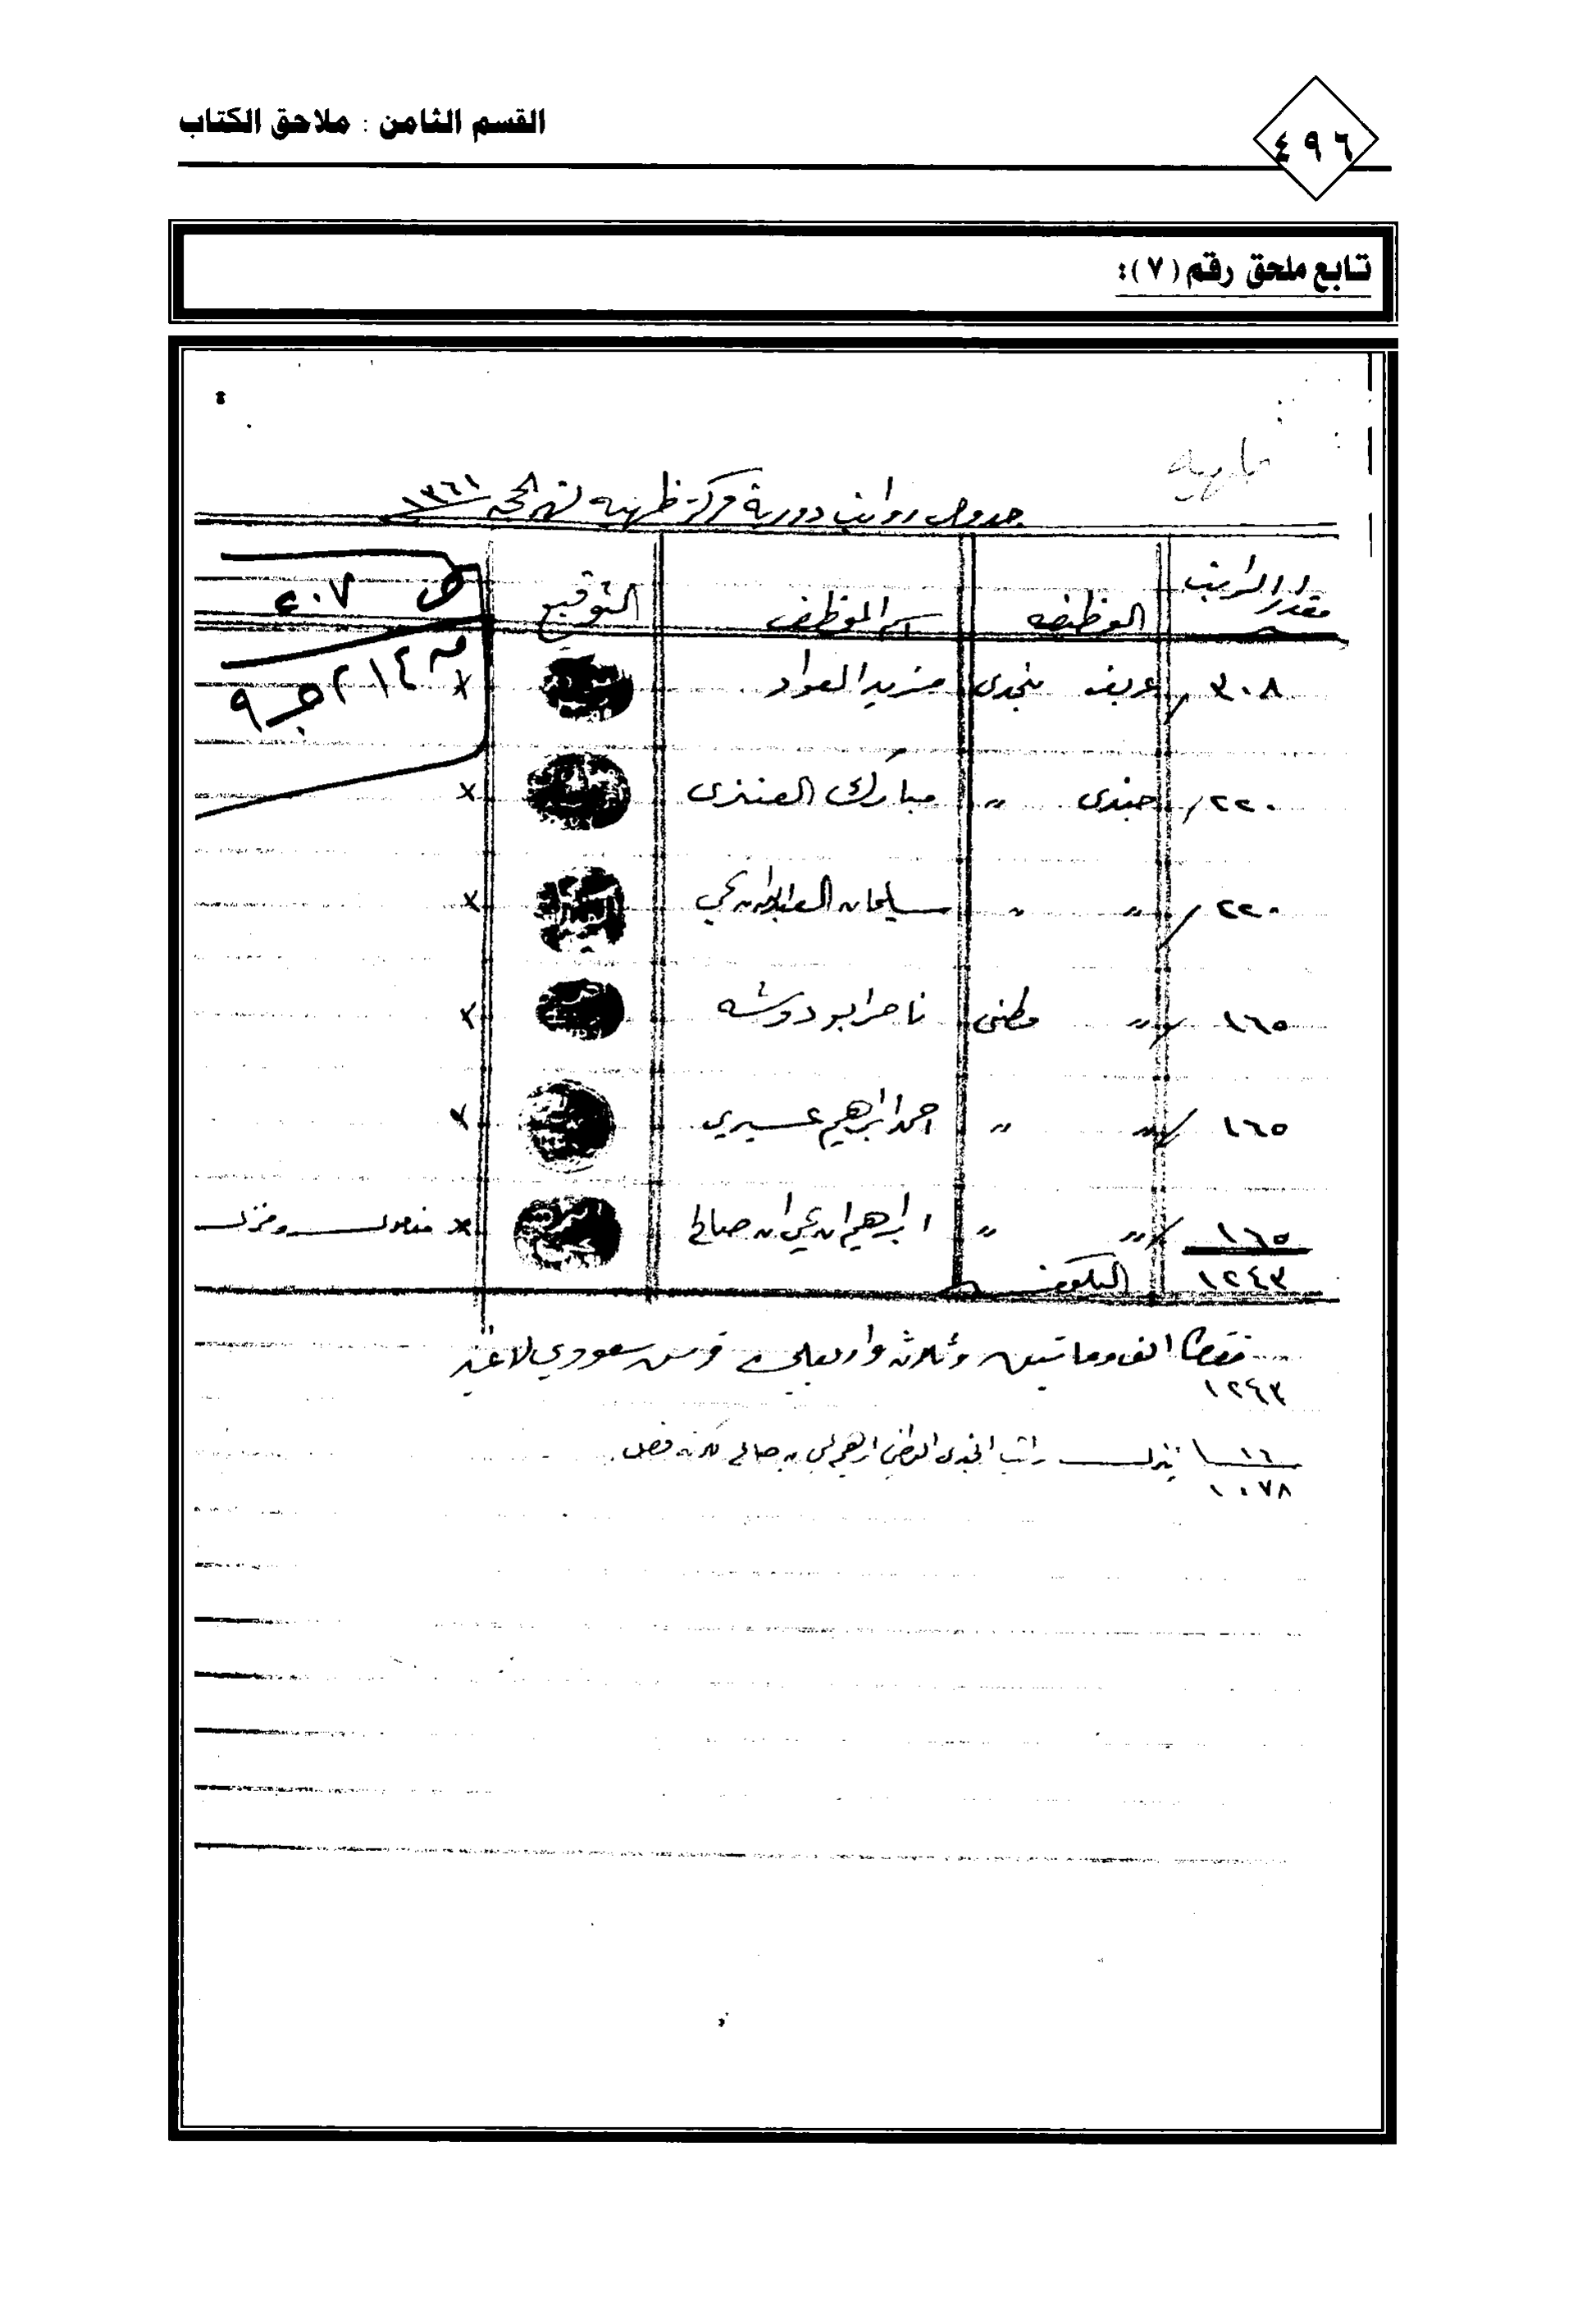 ٤٩٦
القسم الثامن : ملاحق الكتاب
تابع ملحق رقم (٧):
جدول رواتب دورية مركز ظهيه لشهر الحجه ١٣٦١
مقدار الراتب الوظيفه اسم الموظف التوقيع
٣٠٨/ عريف نجدي مزيد العواد ×
٢٢٠/ جندي " مبارك العنزى ×
٢٢٠/ " " سليمان ×
١٦٥/ " وطنى ناصر ابو دوشه ×
١٦٥/ " " احمد ابراهيم عسيري ×
١٦٥/ " " ابراهيم ابن يحي ابن صالح × مفصول ومنزل
١٢٤٣ اليكون
فقط الف ومائتين وثلاثه واربعين قرش سعودي لاغير
١٢٤٣
ينزل راتب الجندى الوطني ابراهيم يحي بن صالح لكونه فصل
١٠٧٨